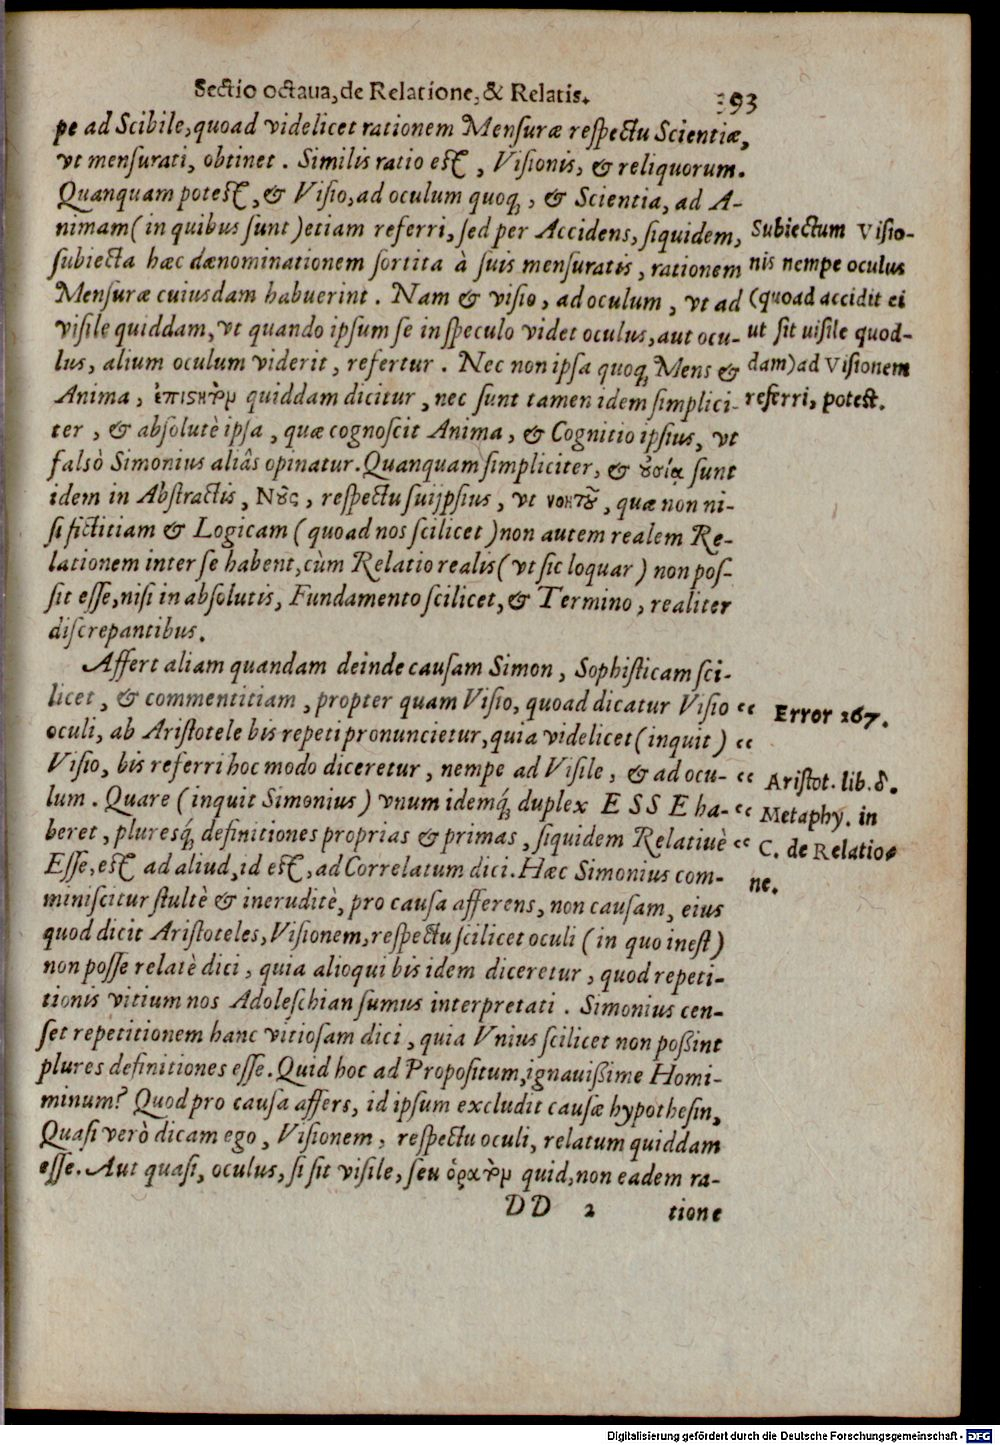 Sectio octaua, de Relatione, & Relatis. 393
pe ad Scibile, quoad videlicet rationem Mensuræ respectu Scientiæ,
vt mensurati, obtinet. Similis ratio est, Visionis, & reliquorum.
Quanquam potest, & Visio, ad oculum quoq́, & Scientia, ad A-
nimam (in quibus sunt) etiam referri, sed per Accidens, siquidem,
subiecta hæc dænominationem sortita à suis mensuratis, rationem
Mensuræ cuiusdam habuerint. Nam & visio, ad oculum, vt ad
visile quiddam, vt quando ipsum se in speculo videt oculus, aut ocu-
lus, alium oculum viderit, refertur. Nec non ipsa quoq́ Mens &
Anima, quiddam dicitur, nec sunt tamen idem simplici-
ter, & absolutè ipsa, quæ cognoscit Anima, & Cognitio ipsius, vt
falsò Simonius aliâs opinatur. Quanquam simpliciter, & οὐσίᾳ sunt
idem in Abstractis, Νοῦς, respectu suijpsius, vt νοητοῦ, quæ non ni-
si fictitiam & Logicam (quoad nos scilicet) non autem realem Re-
lationem inter se habent, cùm Relatio realis (vt sic loquar) non pos-
sit esse, nisi in absolutis, Fundamento scilicet, & Termino, realiter
discrepantibus.
Affert aliam quandam deinde causam Simon, Sophisticam sci-
licet, & commentitiam, propter quam Visio, quoad dicatur Visio “
oculi, ab Aristotele bis repeti pronuncietur, quia videlicet (inquit) “
Visio, bis referri hoc modo diceretur, nempe ad Visile, & ad ocu- “
lum. Quare (inquit Simonius) vnum idemq́ duplex ESSE ha- “
beret, pluresq́ definitiones proprias & primas, siquidem Relatiuè “
Esse, est ad aliud, id est, ad Correlatum dici. Hæc Simonius com-
miniscitur stultè & ineruditè, pro causa afferens, non causam, eius
quod dicit Aristoteles, Visionem, respectu scilicet oculi (in quo inest)
non posse relatè dici, quia alioqui bis idem diceretur, quod repeti-
tionis vitium nos Adoleschian sumus interpretati. Simonius cen-
set repetitionem hanc vitiosam dici, quia Vnius scilicet non poßint
plures definitiones esse. Quid hoc ad Propositum, ignauißime Homi-
minum? Quod pro causa affers, id ipsum excludit causæ hypothesin,
Quasi verò dicam ego, Visionem, respectu oculi, relatum quiddam
esse. Aut quasi, oculus, si sit visile, seu quid, non eadem ra-
DD 2 tione
Subiectum Visio-
nis nempe oculus
(quoad accidit ei
ut sit uisile quod-
dam) ad Visionem
referri, potest.
Error 267.
Aristot. lib. δ.
Metaphy. in
C. de Relatio-
ne.
Digitalisierung gefördert durch die Deutsche Forschungsgemeinschaft - DFG